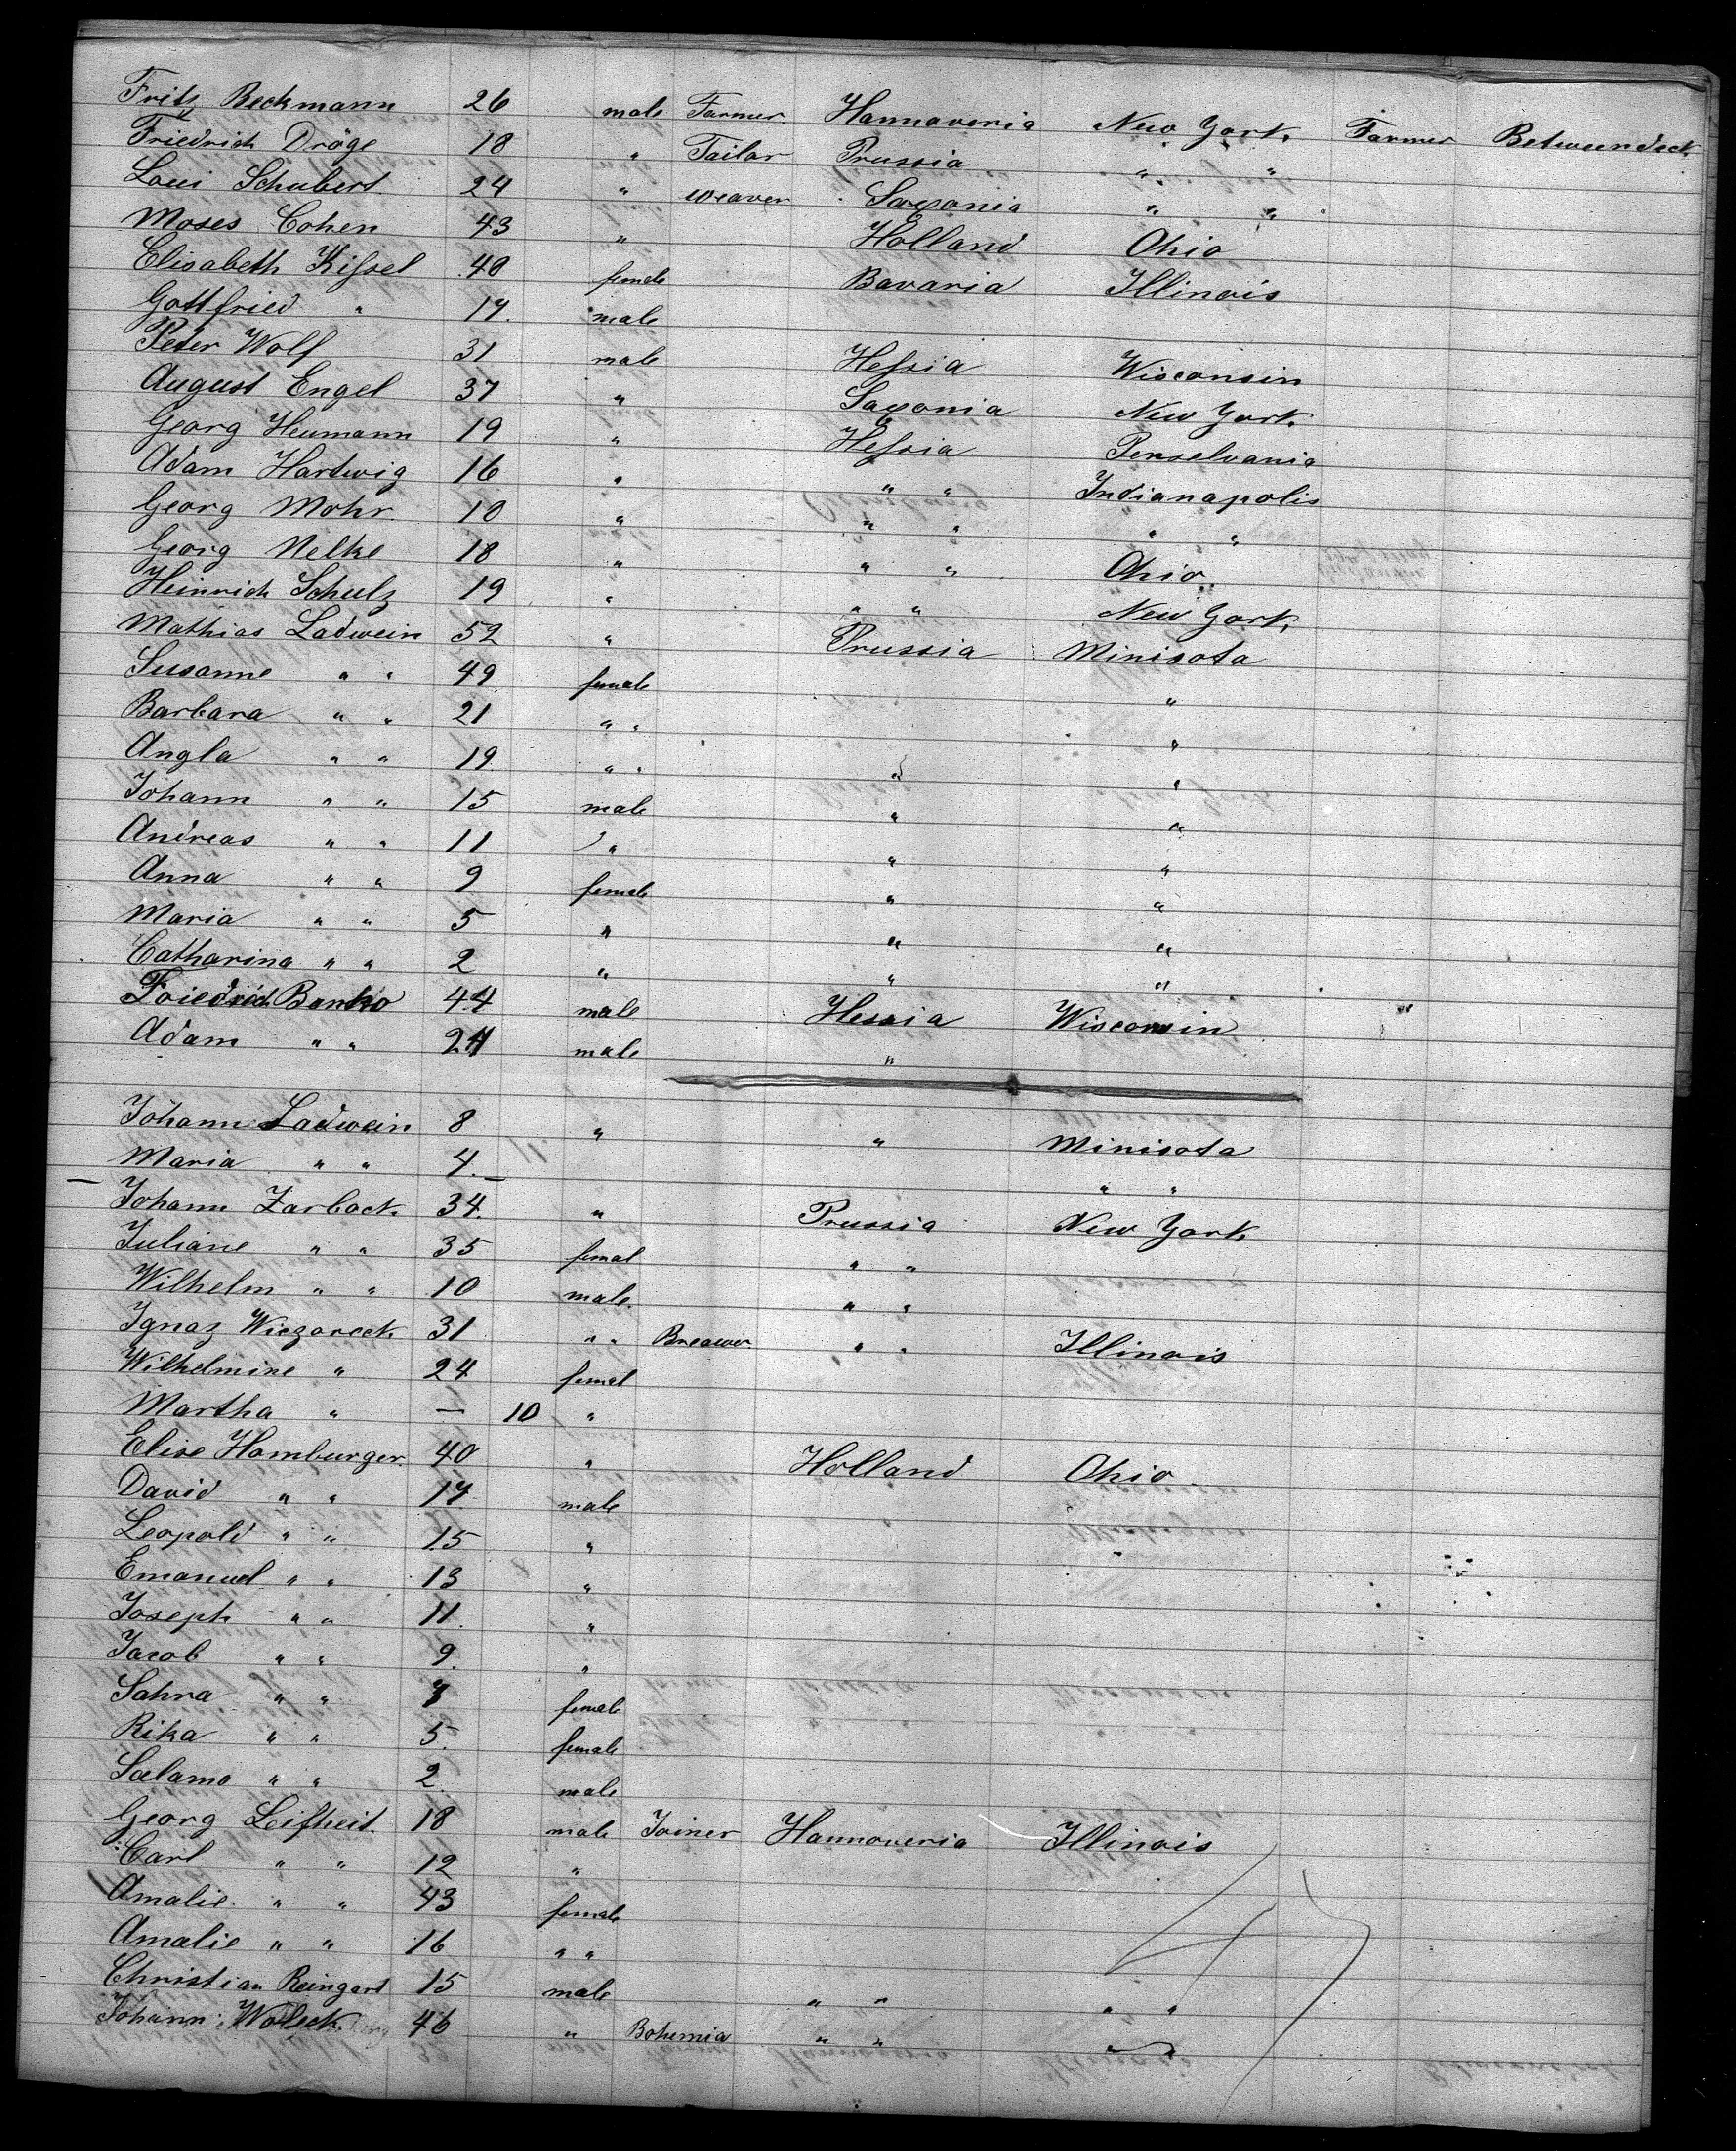 Fritz Beckmann 26 male Farmer. Hannoveria New York. Farmer Betweendeck
Friedrich Dröge 18 " Tailar Prussia " "
Loui Schubert 24 " weaver Saxonia " "
Moses Cohen 43 " Holland Ohio
Elisabeth Kißel 40 female Bavaria Illinois
Gottfried " 17. male
Peter Wolf 31 male Heßia Wisconsin
August Engel 37 " Saxonia New York.
Georg Heumann 19 " Heßia Penselvania
Adam Hartwig 16 " " " Indianapolis
Georg Mohr. 10 " " " " "
Georg Nelke 18 " " " Ohio.
Heinrich Schulz 19 " " " New York,
Mathias Ladwein 52 " Prussia Minisota
Susanne " " 49 female "
Barbara " " 21 " " "
Angla " " 19. " " " "
Johann " " 15 male " "
Andreas " " 11 " " "
Anna " " 9 female " "
Maria " " 5 " " "
Catharina " " 2 " " "
Friedrich 44 male Hessia Wisconsin
Adam " " 24 male "
Johann Ladwein 8 " " Minisota
Maria " " 4. " "
Johann Zarbock 34. " Prussia New York
Juliane " " 35 femal " "
Wilhelm " " 10 male. " "
Ignaz Wiezoreck 31 " " Breawer " " Illinois
Wilhelmine " 24 femal
Martha " — 10 "
Elise Homburger. 40 " Holland Ohio
David " " 17 male
Leopold " " 15 "
Emanuel " " 13 "
Joseph " " 11. "
Jacob " " 9. "
Sahra " " 7 female
Rika " " 5. female
Salamo " " 2. male
Georg Leifheit. 18 male Joiner Hannoveria Illinois
Carl " " 12 "
Amalie. " " 43 female
Amalie " " 16 " "
Christian Reingart 15 male " " " "
Johann 46 " Bohemia " " " "